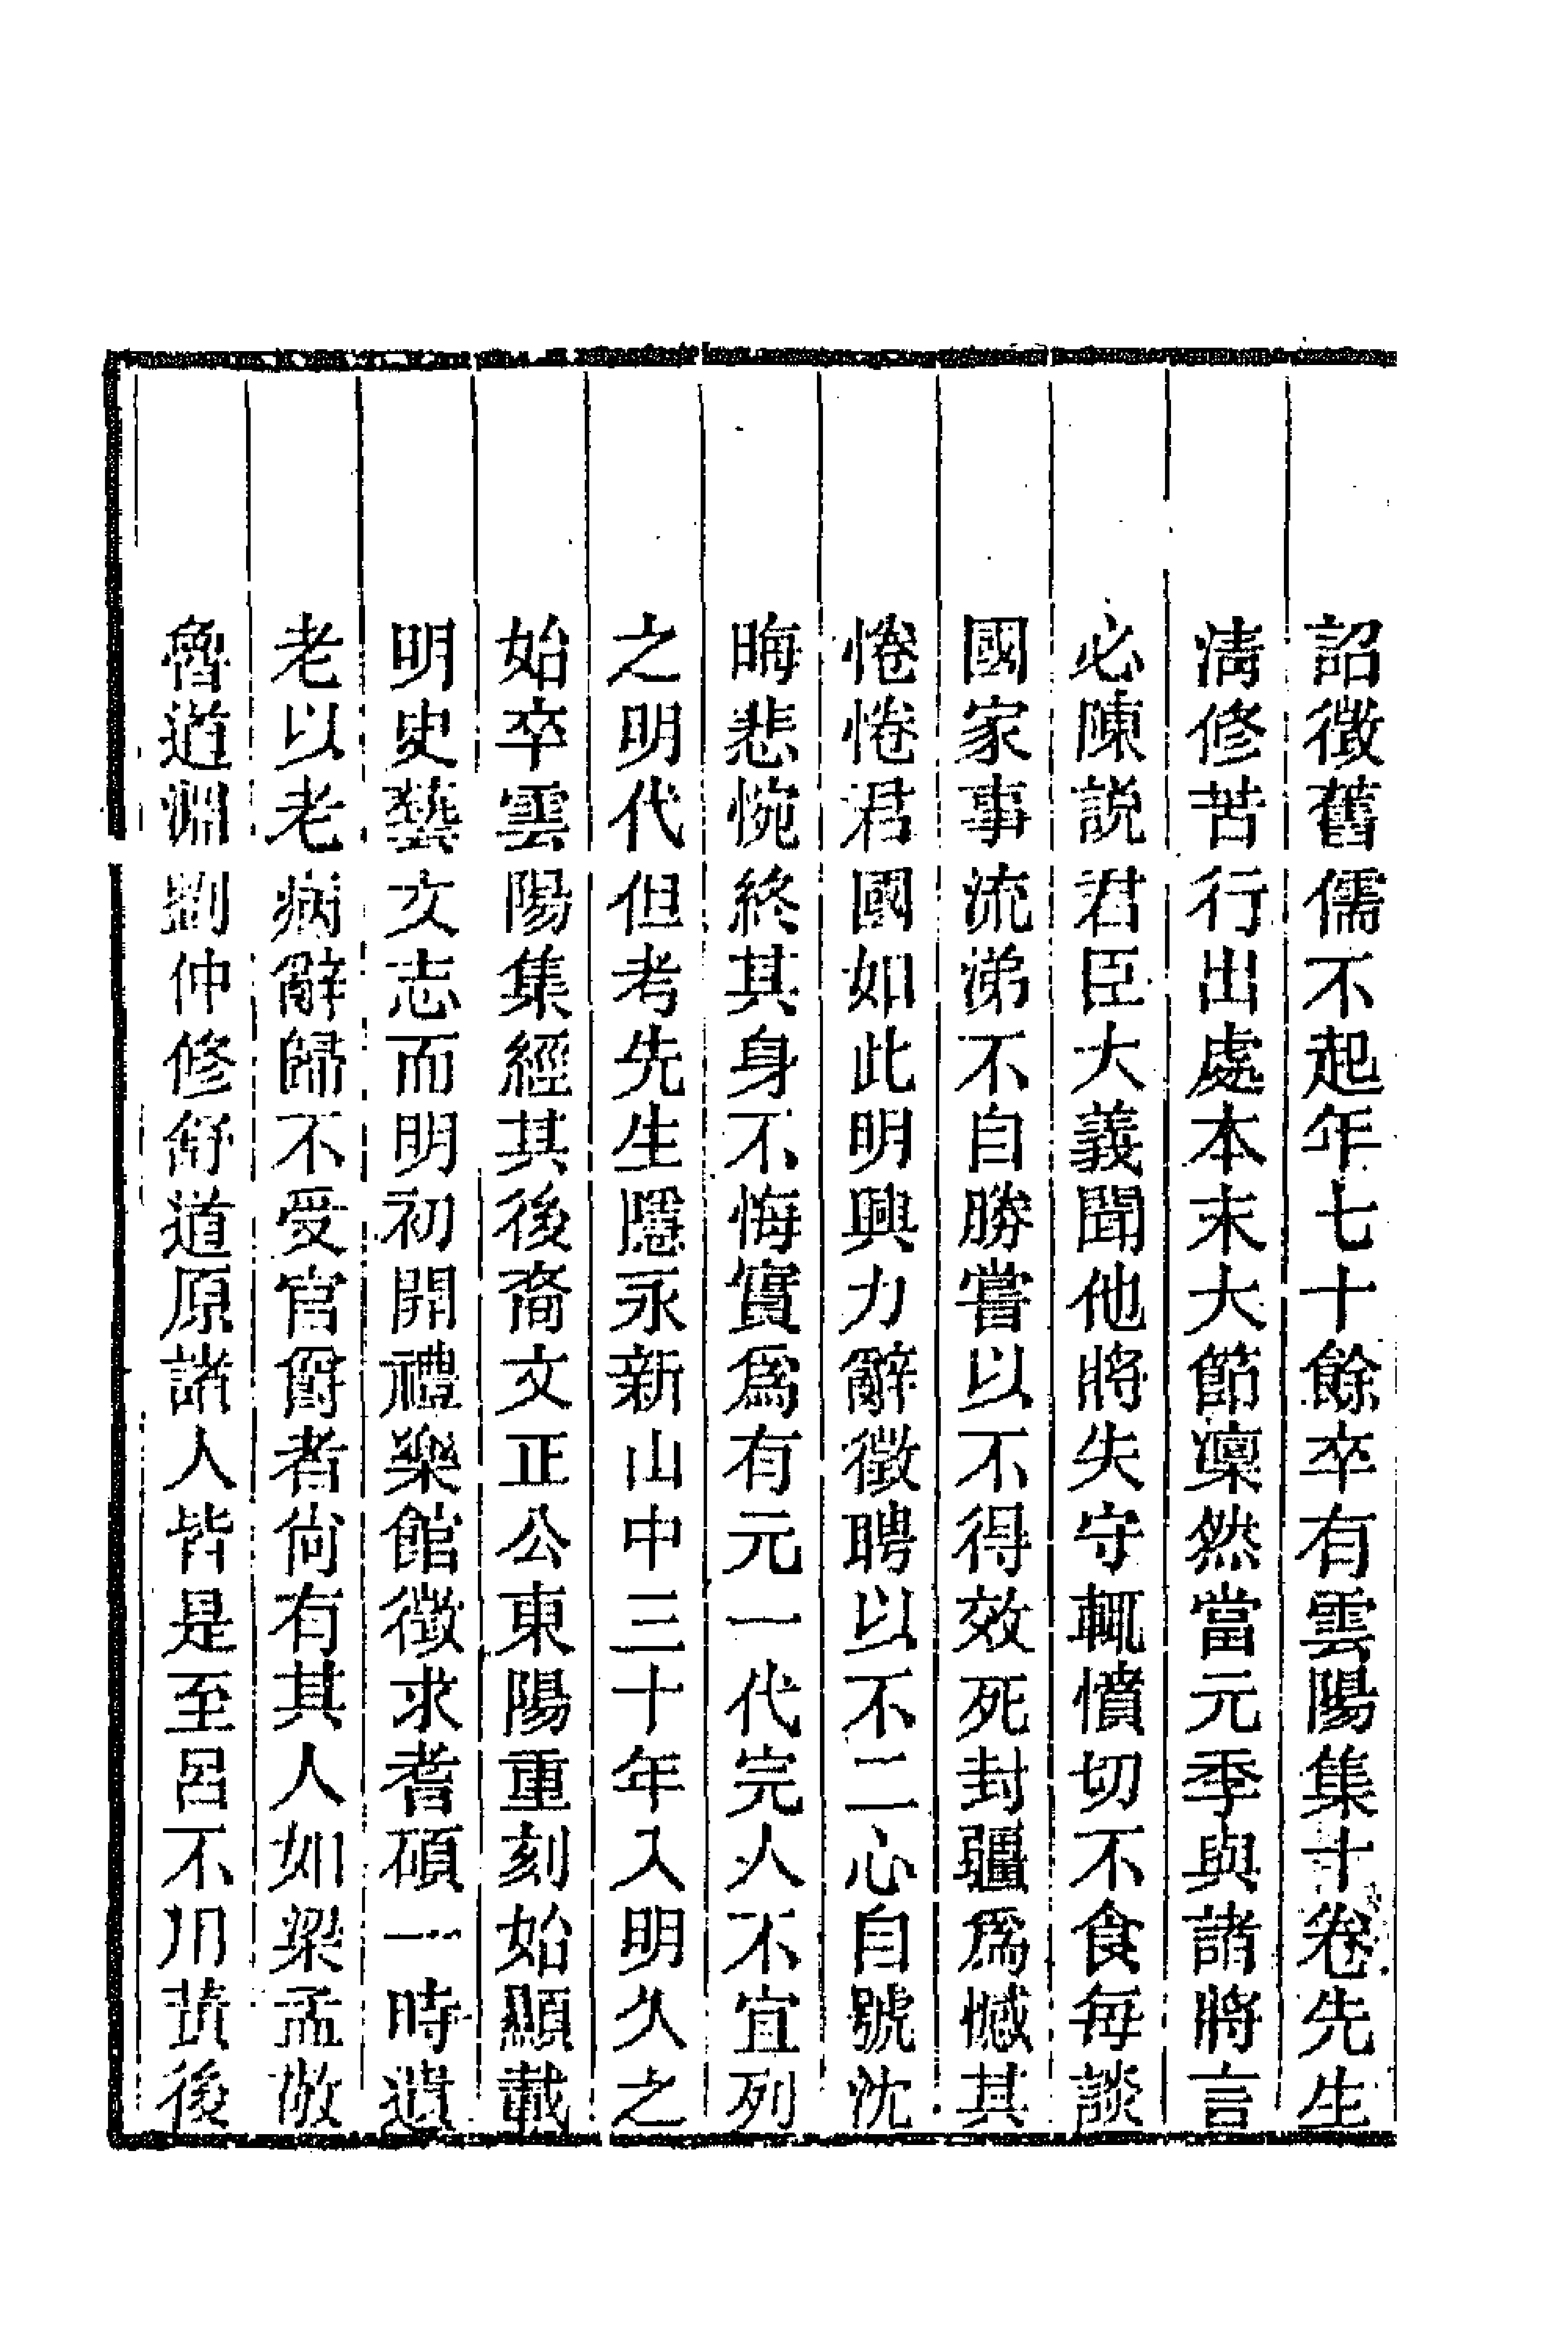 詔徵舊儒不起年七十餘卒有雲陽集十卷先生
淸修苦行出處本末大節凜然當元季與諸將言
必陳說君臣大義聞他將失守輒憤切不食每談
國家事流涕不自勝嘗以不得效死封疆爲憾其
惓惓君國如此明興力辭徵聘以不二心自號沈
晦悲惋終其身不悔實爲有元一代完人不宜列
之明代但考先生隱永新山中三十年入明久之
始卒雲陽集經其後裔文正公東陽重刻始顯載
明史藝文志而明初開禮樂館徵求耆碩一時遺
老以老病辭歸不受官爵者尙有其人如梁孟敬
魯道淵劉仲修舒道原諸人皆是至呂不用其後